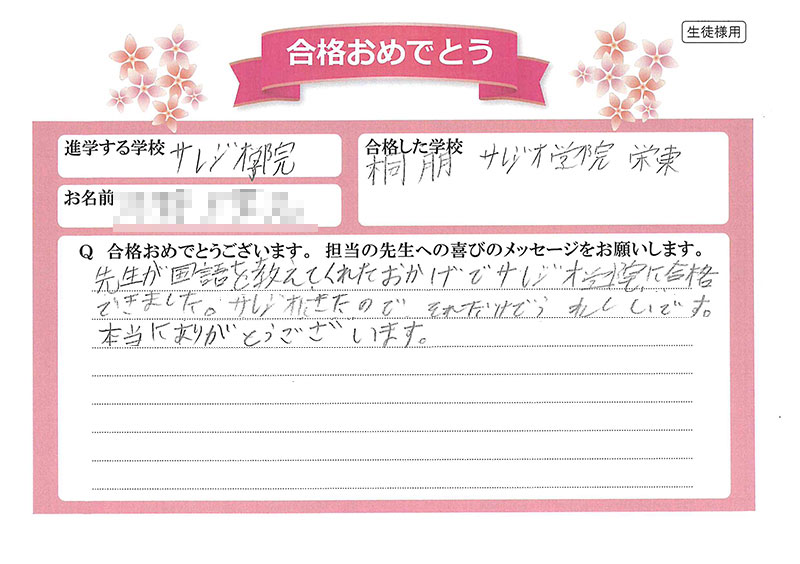 合格おめでとう
生徒様用
進学する学校 サレジオ学院
合格した学校
桐朋 サレジオ学院 栄東
お名前
Q 合格おめでとうございます。担当の先生への喜びのメッセージをお願いします。
先生が国語を教えてくれたおかげでサレジオ学院に合格
できました。サレジオ きたので それだけでうれしいです。
本当にありがとうございます。